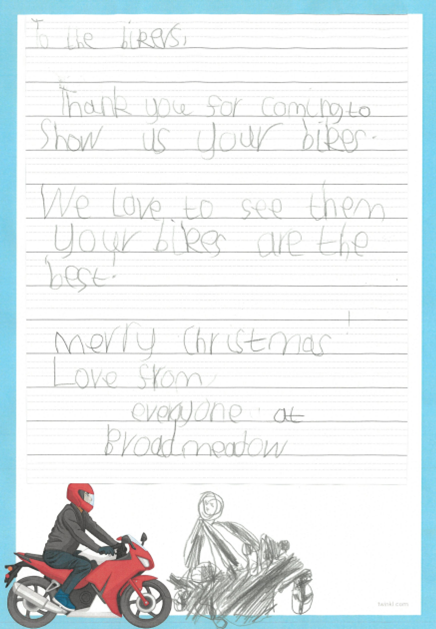 To the bikers,
Thank you for coming to
Show us your bikes.
We love to see them
your bikes are the
best.
merry Christmas!
Love from
everyone at
Broadmeadow
twinkl.com